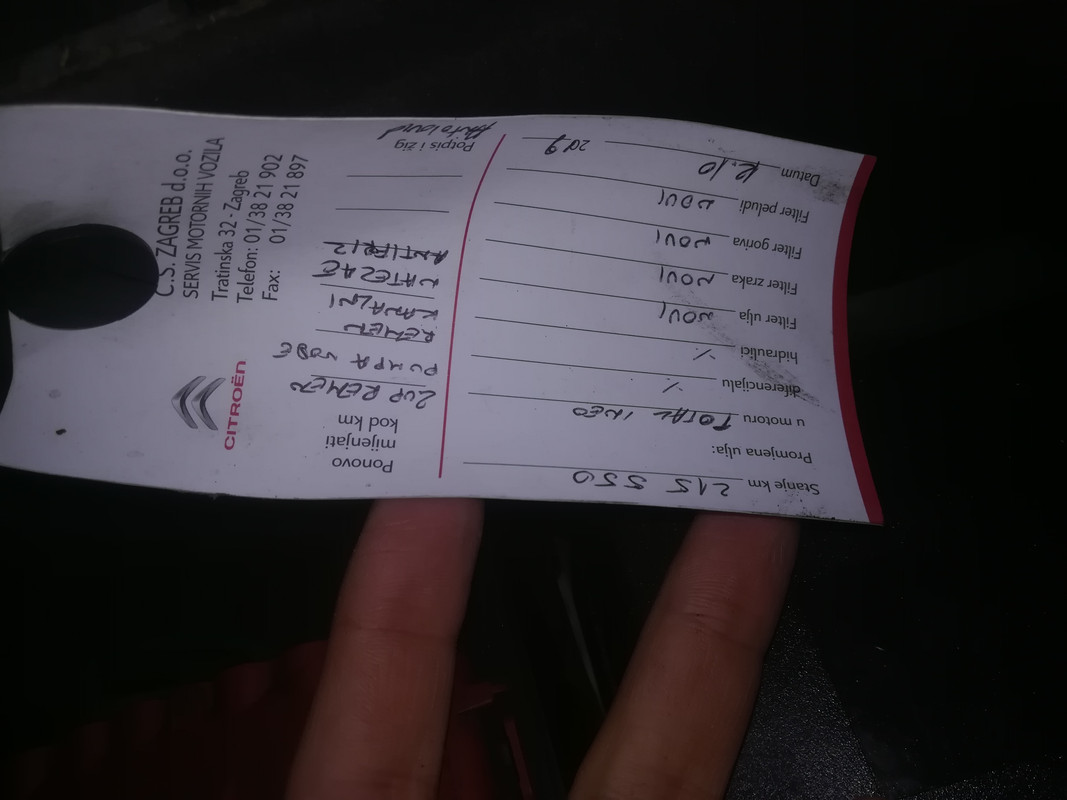 CITROËN
C.S. ZAGREB d.o.o.
SERVIS MOTORNIH VOZILA
Tratinska 32 - Zagreb
Telefon: 01/38 21 902
Fax: 01/38 21 897
Stanje km 215 550
Promjena ulja:
u motoru TOTAL INEO
diferencijalu %
hidraulici %
Filter ulja NOVI
Filter zraka NOVI
Filter goriva NOVI
Filter peludi NOVI
Datum 10 20
Ponovo
mijenjati
kod km
ZUP REMEN
PUMPA VODE
REMEN
KANALNI
NATEZAČ
ANTIFRIZ
Potpis i žig